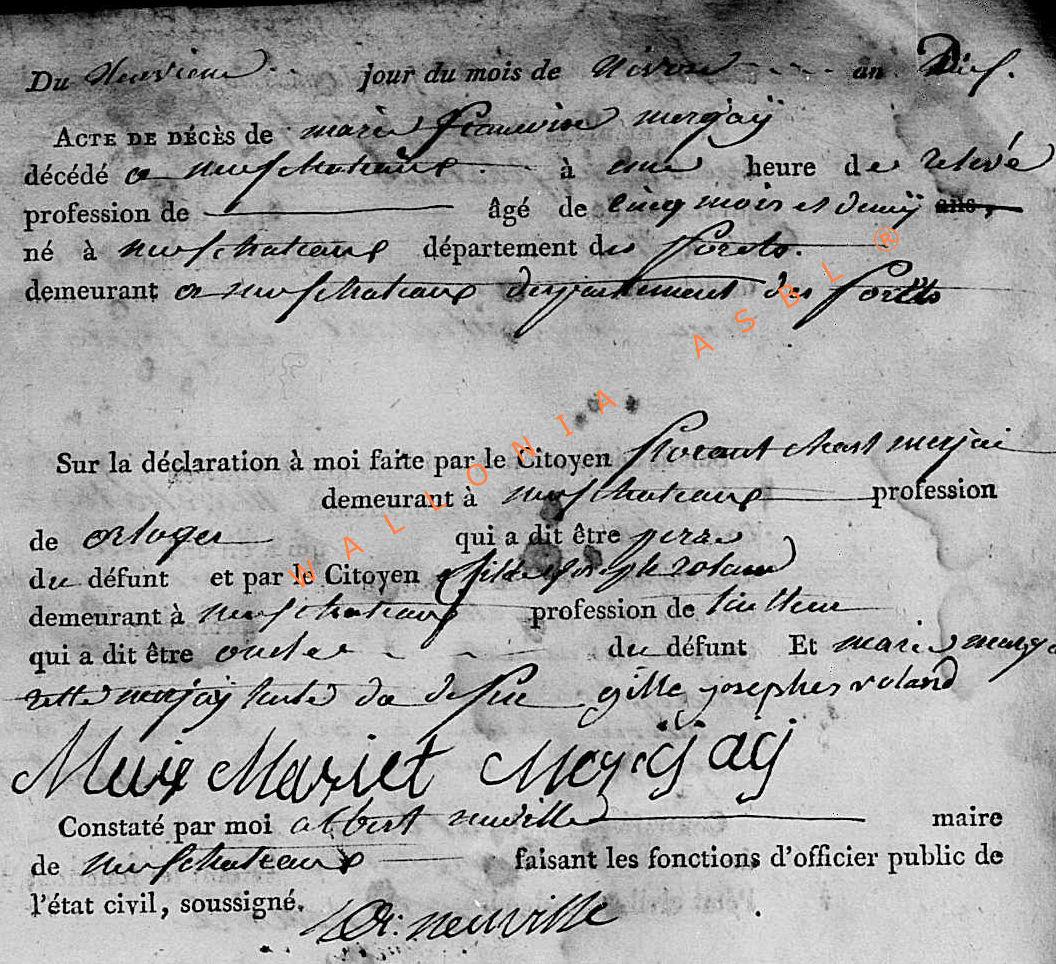 Du neuvieme jour du mois de nivose an Dix.
ACTE DE DÉCÈS de marie francoise merjaÿ
décédé a neufchateaux à une heure de relevé
profession de âgé de cinq mois et demÿ ans,
né à neufchateaux département des forets.
demeurant a neufchateaux departement des forets
Sur la déclaration à moi faite par le Citoyen florant merjai
demeurant à neufchateaux profession
de orloger qui a dit être perre
du défunt et par le Citoyen joseph roland
demeurant à neufchateaux profession de
qui a dit être oncle du défunt Et marie marga
rette merjaÿ tante du gille josephes roland
Merjay
Constaté par moi albert neuville maire
de neufchateaux faisant les fonctions d'officier public de
l'état civil, soussigné.
neuville
WALLONIA ASBL ®